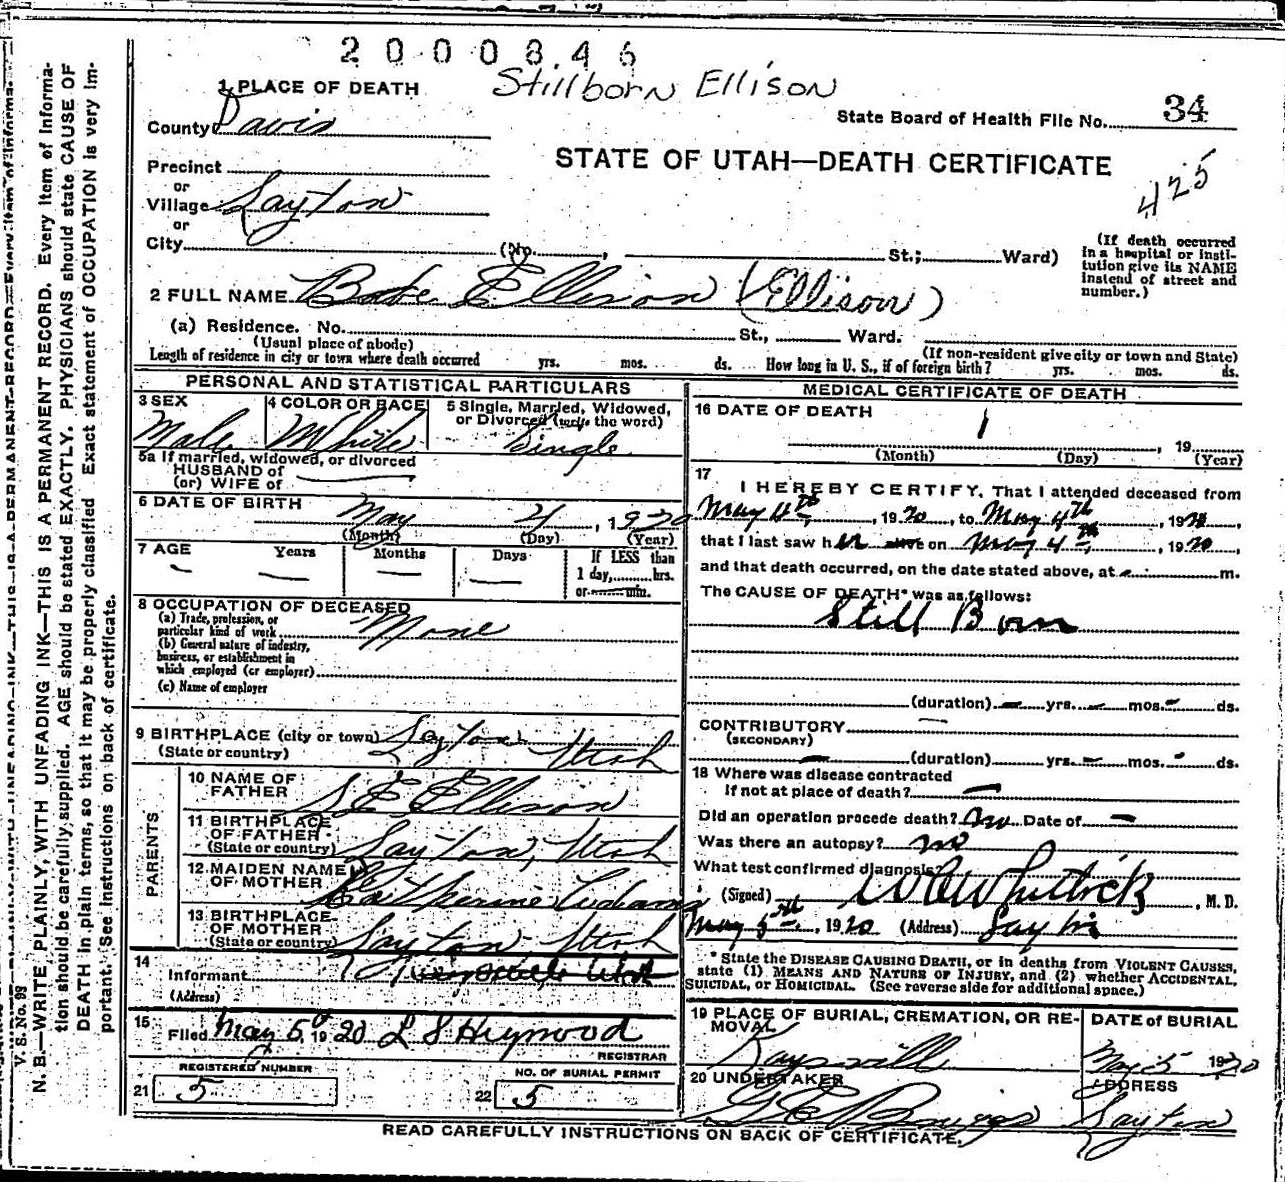 2000846
Stillborn Ellison
1 PLACE OF DEATH
State Board of Health File No. 34
County Davis
STATE OF UTAH—DEATH CERTIFICATE
425
Precinct
or
Village Layton
or
City (No. , St.; Ward)
(If death occurred in a hospital or institution give its NAME instead of street and number.)
2 FULL NAME Babe Ellison (Ellison)
(a) Residence. No. St., Ward.
(Usual place of abode) (If non-resident give city or town and State)
Length of residence in city or town where death occurred yrs. mos. ds. How long in U. S., if of foreign birth? yrs. mos. ds.
PERSONAL AND STATISTICAL PARTICULARS
3 SEX Male
4 COLOR OR RACE White
5 Single, Married, Widowed, or Divorced (write the word) Single
5a If married, widowed, or divorced
HUSBAND of
(or) WIFE of
6 DATE OF BIRTH May 4, 1920
(Month) (Day) (Year)
7 AGE Years Months Days If LESS than
1 day, hrs.
or min.
8 OCCUPATION OF DECEASED
(a) Trade, profession, or
particular kind of work None
(b) General nature of industry,
business, or establishment in
which employed (or employer)
(c) Name of employer
9 BIRTHPLACE (city or town) Layton Utah
(State or country)
PARENTS
10 NAME OF FATHER E Ellison
11 BIRTHPLACE OF FATHER Layton, Utah
(State or country)
12 MAIDEN NAME OF MOTHER
13 BIRTHPLACE OF MOTHER Layton Utah
(State or country)
14
Informant
(Address)
15
Filed May 5, 1920 L S Heywood
REGISTRAR
REGISTERED NUMBER
21 5
NO. OF BURIAL PERMIT
22 5
MEDICAL CERTIFICATE OF DEATH
16 DATE OF DEATH
, 19
(Month) (Day) (Year)
17
I HEREBY CERTIFY, That I attended deceased from
May 4th, 1920, to May 4th, 1920,
that I last saw her alive on May 4th, 1920,
and that death occurred, on the date stated above, at m.
The CAUSE OF DEATH* was as follows:
Still Born
(duration) yrs. mos. ds.
CONTRIBUTORY
(SECONDARY)
(duration) yrs. mos. ds.
18 Where was disease contracted
if not at place of death?
Did an operation procede death? No Date of
Was there an autopsy? no
What test confirmed diagnosis?
(Signed) , M. D.
May 5, 1920 (Address) Layton
* State the DISEASE CAUSING DEATH, or in deaths from VIOLENT CAUSES,
state (1) MEANS AND NATURE OF INJURY, and (2) whether ACCIDENTAL,
SUICIDAL, or HOMICIDAL. (See reverse side for additional space.)
19 PLACE OF BURIAL, CREMATION, OR REMOVAL Kaysville
DATE of BURIAL May 5 1920
20 UNDERTAKER G E Briggs
ADDRESS Layton
READ CAREFULLY INSTRUCTIONS ON BACK OF CERTIFICATE.
V. S. No. 99
N. B.—WRITE PLAINLY, WITH UNFADING INK—THIS IS A PERMANENT RECORD. Every item of Informa-
tion should be carefully supplied. AGE should be stated EXACTLY. PHYSICIANS should state CAUSE OF
DEATH in plain terms, so that it may be properly classified. Exact statement of OCCUPATION is very im-
portant. See Instructions on back of certificate.